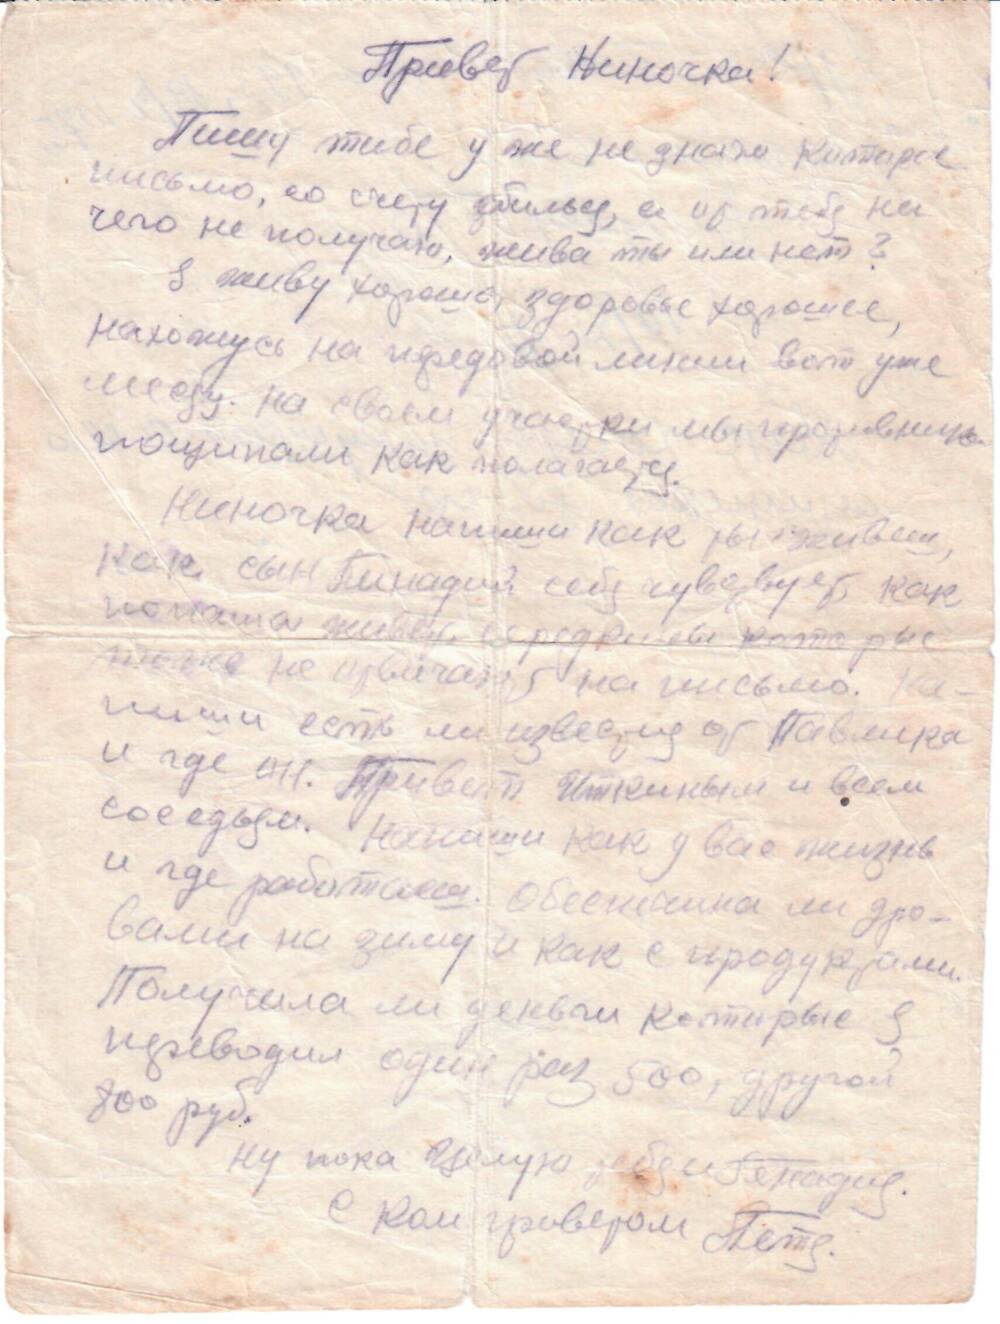 Привет Ниночка!
Пишу тибе уже не знаю которое
письмо, по счету а от тебя ни
чего не получаю, жива ты или нет?
Я живу хорошо, здоровье хорошее,
нахожусь на передовой линии вот уже
месяц. на своем участки мы противника
пощипали как полагается.
Ниночка напиши как ты живеш,
как сын Гинадий себя чувствует как
папаша живет, которые
тоже не отвечают на письмо. На-
пиши есть ли известия от Павлика
и где он. Привет Иткиным и всем
соседям. Напиши как у вас жизнь
и где работаеш. Обеспечина ли дро-
вами на зиму и как с продуктами.
Получила ли деньги которые я
переводил один раз 500, другой
800 руб.
Ну пока целую тебя и Генадия.
С ком приветом Петя.